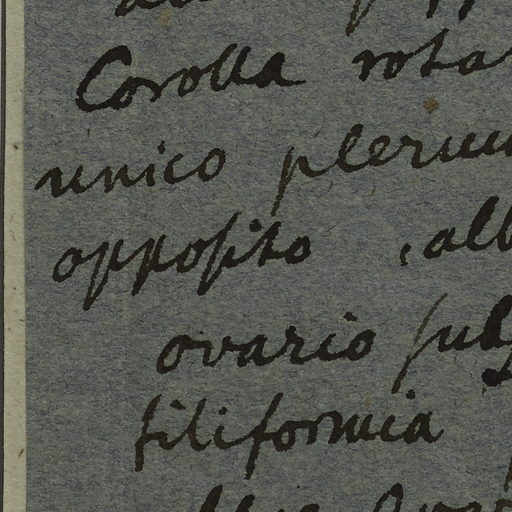 Corolla rota
unico plerum
opposito, alb
ovario sub
filiformia